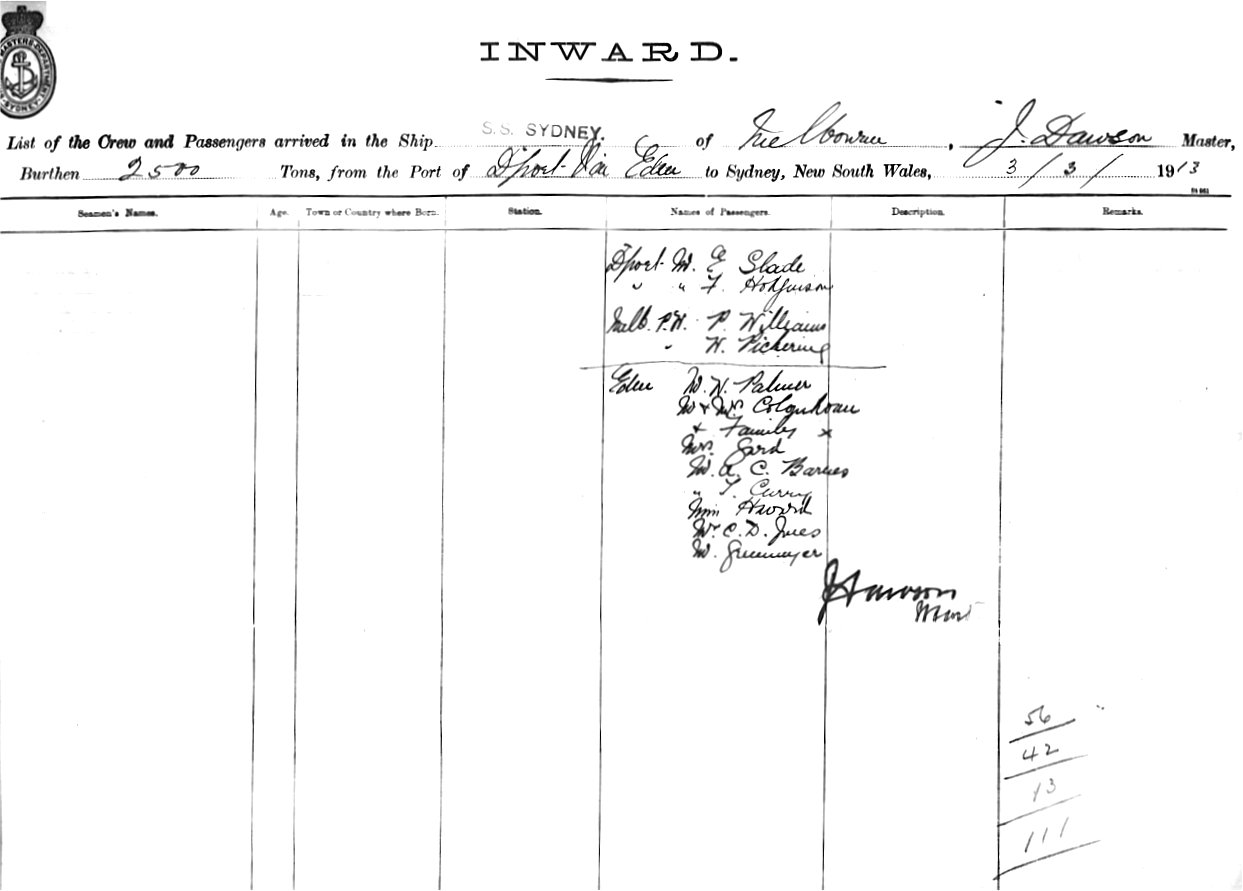 MASTERS DEPARTMENT
SYDNEY
INWARD.
List of the Crew and Passengers arrived in the Ship S.S. SYDNEY. of Melbourne, J. Dawson Master,
Burthen 2500 Tons, from the Port of D'port Via Eden to Sydney, New South Wales, 3/3/1913
Seamen's Names. Age. Town or Country where Born. Station. Names of Passengers. Description. Remarks.
D'port M. E Slade
" " F. Hodginson
Melb. P.H. P. Williams
" H. Pickering
Eden M. H. Palmer
Mr & Mrs Colquhoun
& Family x
Mrs. Gard
M. A. C. Barnes
" T. Curry
Miss Howard
Mr C. D. Ives
M.
J Dawson
Mast
56
42
13
111